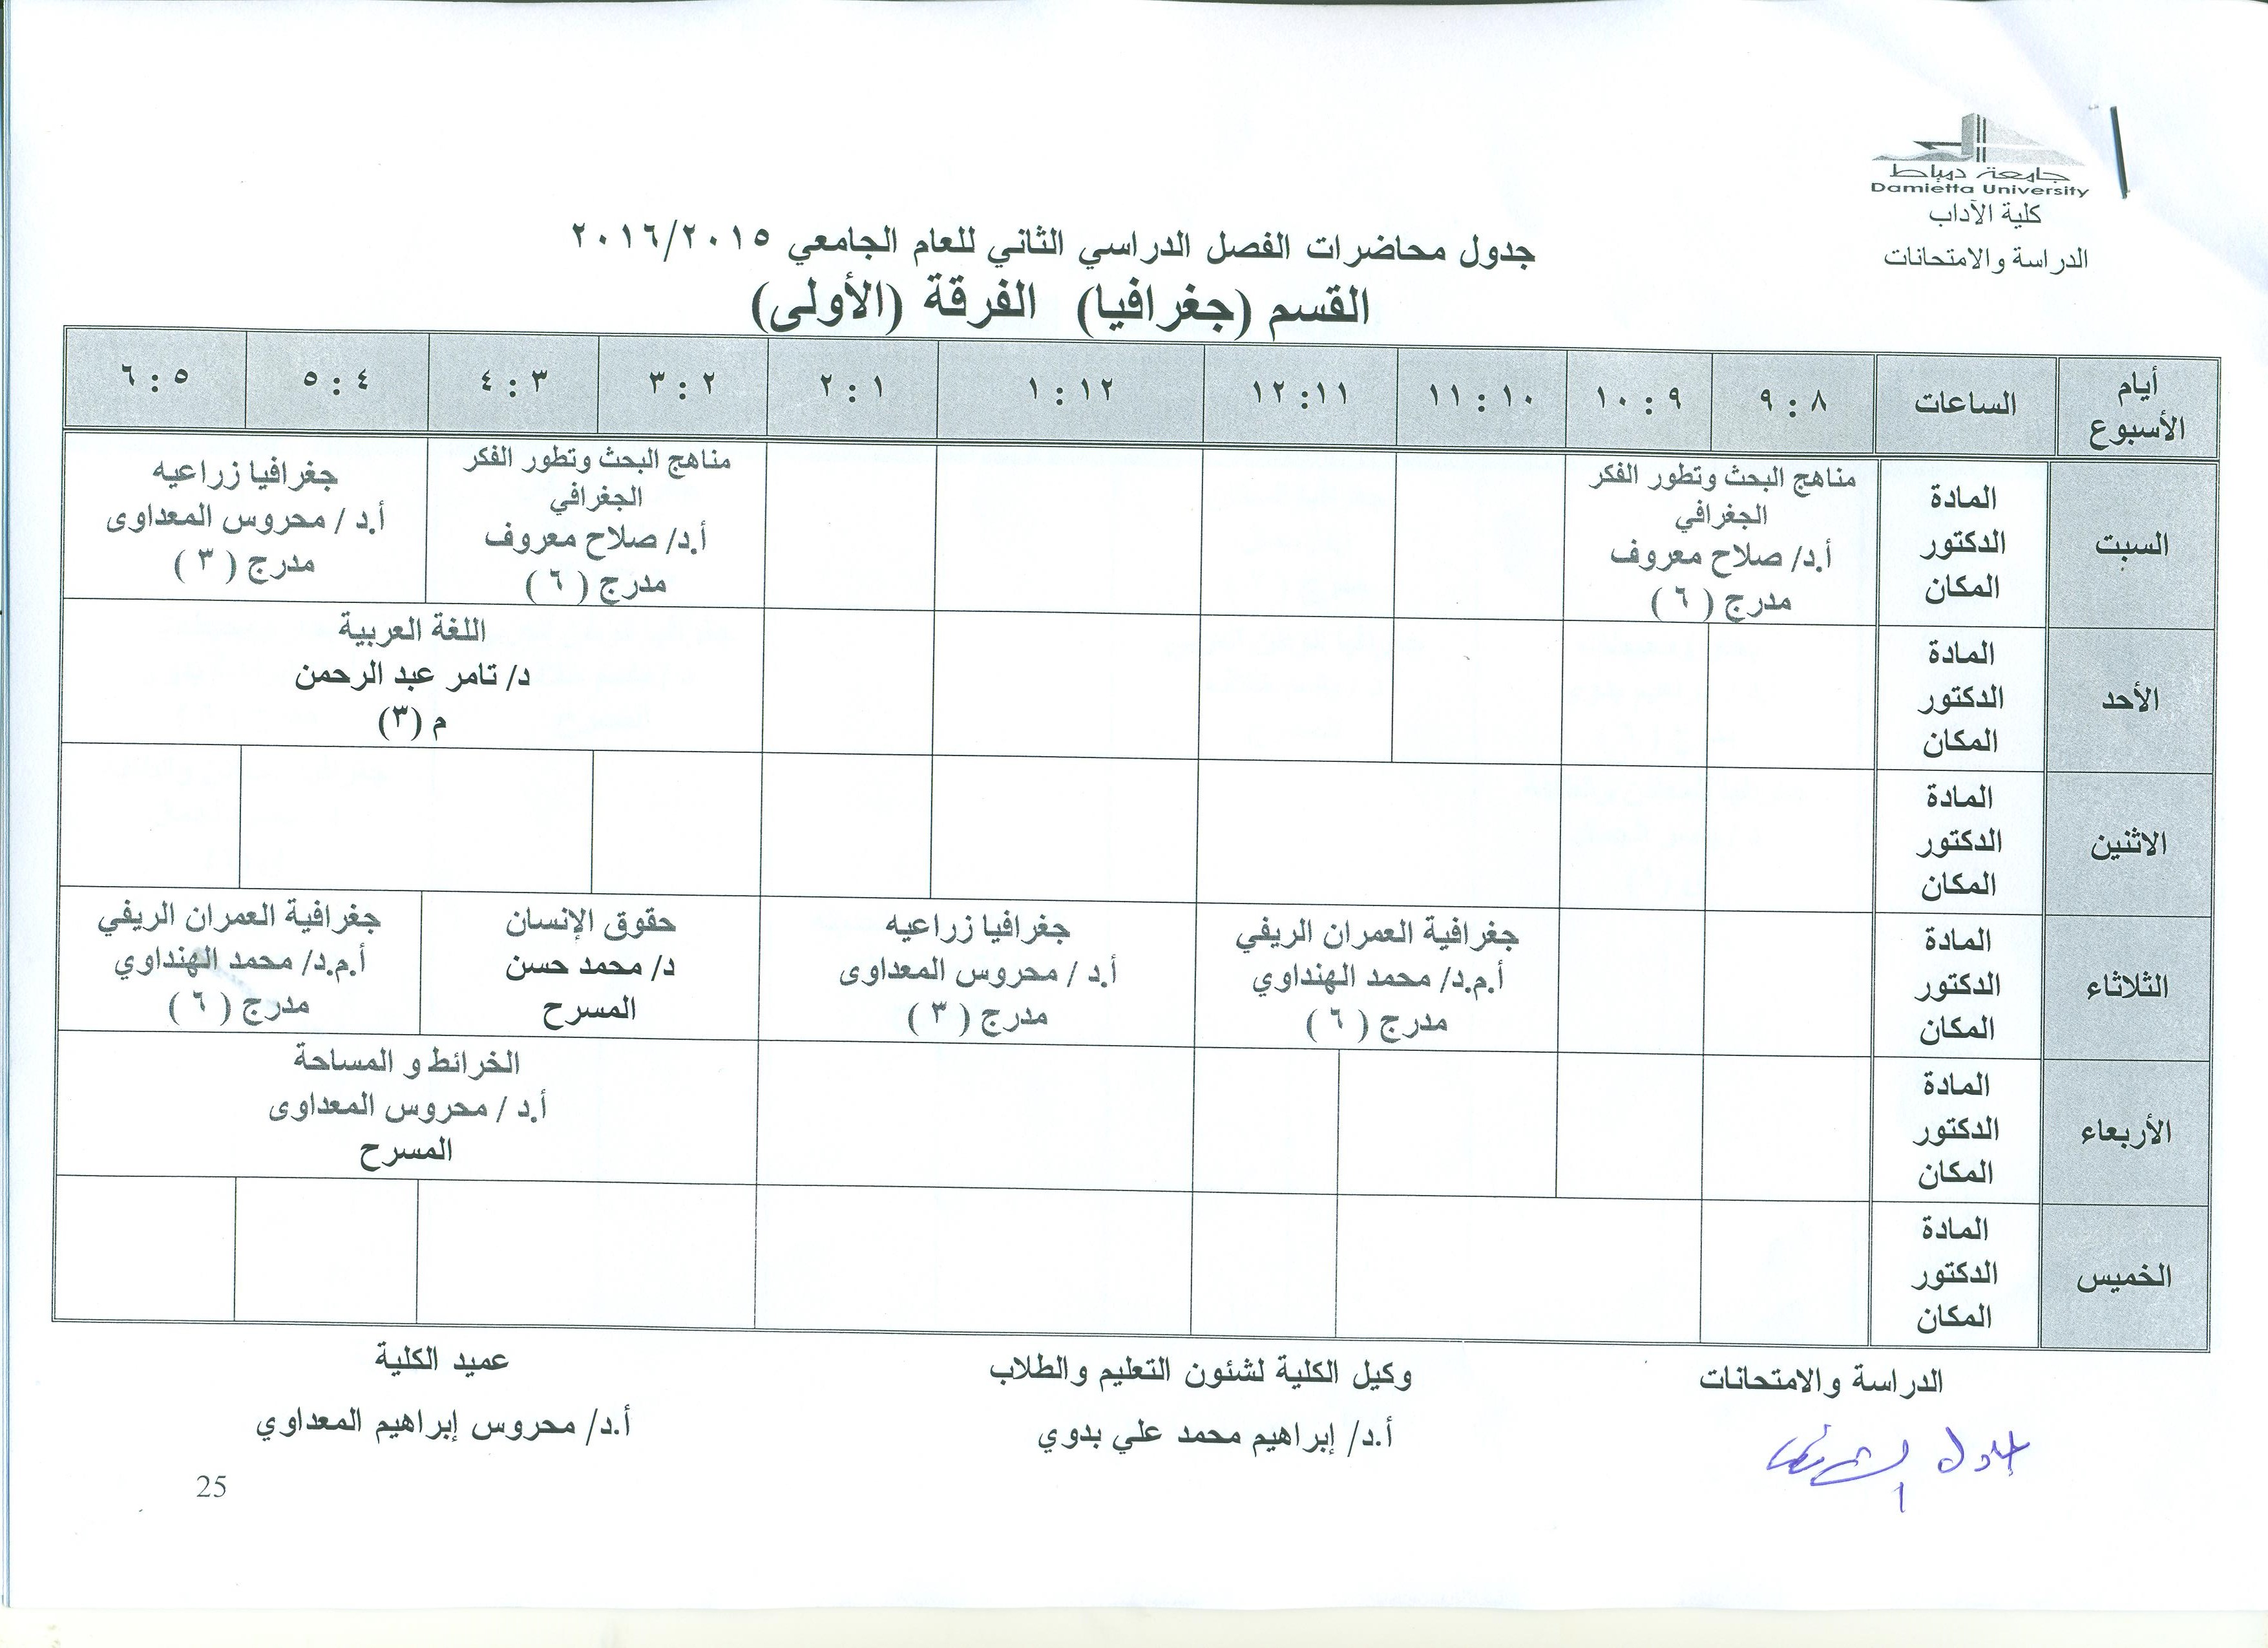 جامعة دمياط
Damietta University
كلية الآداب
الدراسة والامتحانات
جدول محاضرات الفصل الدراسي الثاني للعام الجامعي ٢٠١٦/٢٠١٥
القسم (جغرافيا) الفرقة (الأولى)
أيام
الأسبوع
الساعات
٨ : ٩
٩ : ١٠
١٠ : ١١
١١ : ١٢
١٢ : ١
١ : ٢
٢ : ٣
٣ : ٤
٤ : ٥
٥ : ٦
السبت
المادة
الدكتور
المكان
مناهج البحث وتطور الفكر
الجغرافي
أ.د/ صلاح معروف
مدرج ( ٦ )
مناهج البحث وتطور الفكر
الجغرافي
أ.د/ صلاح معروف
مدرج ( ٦ )
جغرافيا زراعيه
أ.د / محروس المعداوى
مدرج ( ٣ )
الأحد
المادة
الدكتور
المكان
اللغة العربية
د/ تامر عبد الرحمن
م (٣)
الاثنين
المادة
الدكتور
المكان
الثلاثاء
المادة
الدكتور
المكان
جغرافية العمران الريفي
أ.م.د/ محمد الهنداوي
مدرج ( ٦ )
جغرافيا زراعيه
أ.د / محروس المعداوى
مدرج ( ٣ )
حقوق الإنسان
د/ محمد حسن
المسرح
جغرافية العمران الريفي
أ.م.د/ محمد الهنداوي
مدرج ( ٦ )
الأربعاء
المادة
الدكتور
المكان
الخرائط و المساحة
أ.د / محروس المعداوى
المسرح
الخميس
المادة
الدكتور
المكان
الدراسة والامتحانات
وكيل الكلية لشئون التعليم والطلاب
أ.د/ إبراهيم محمد علي بدوي
عميد الكلية
أ.د/ محروس إبراهيم المعداوي
25